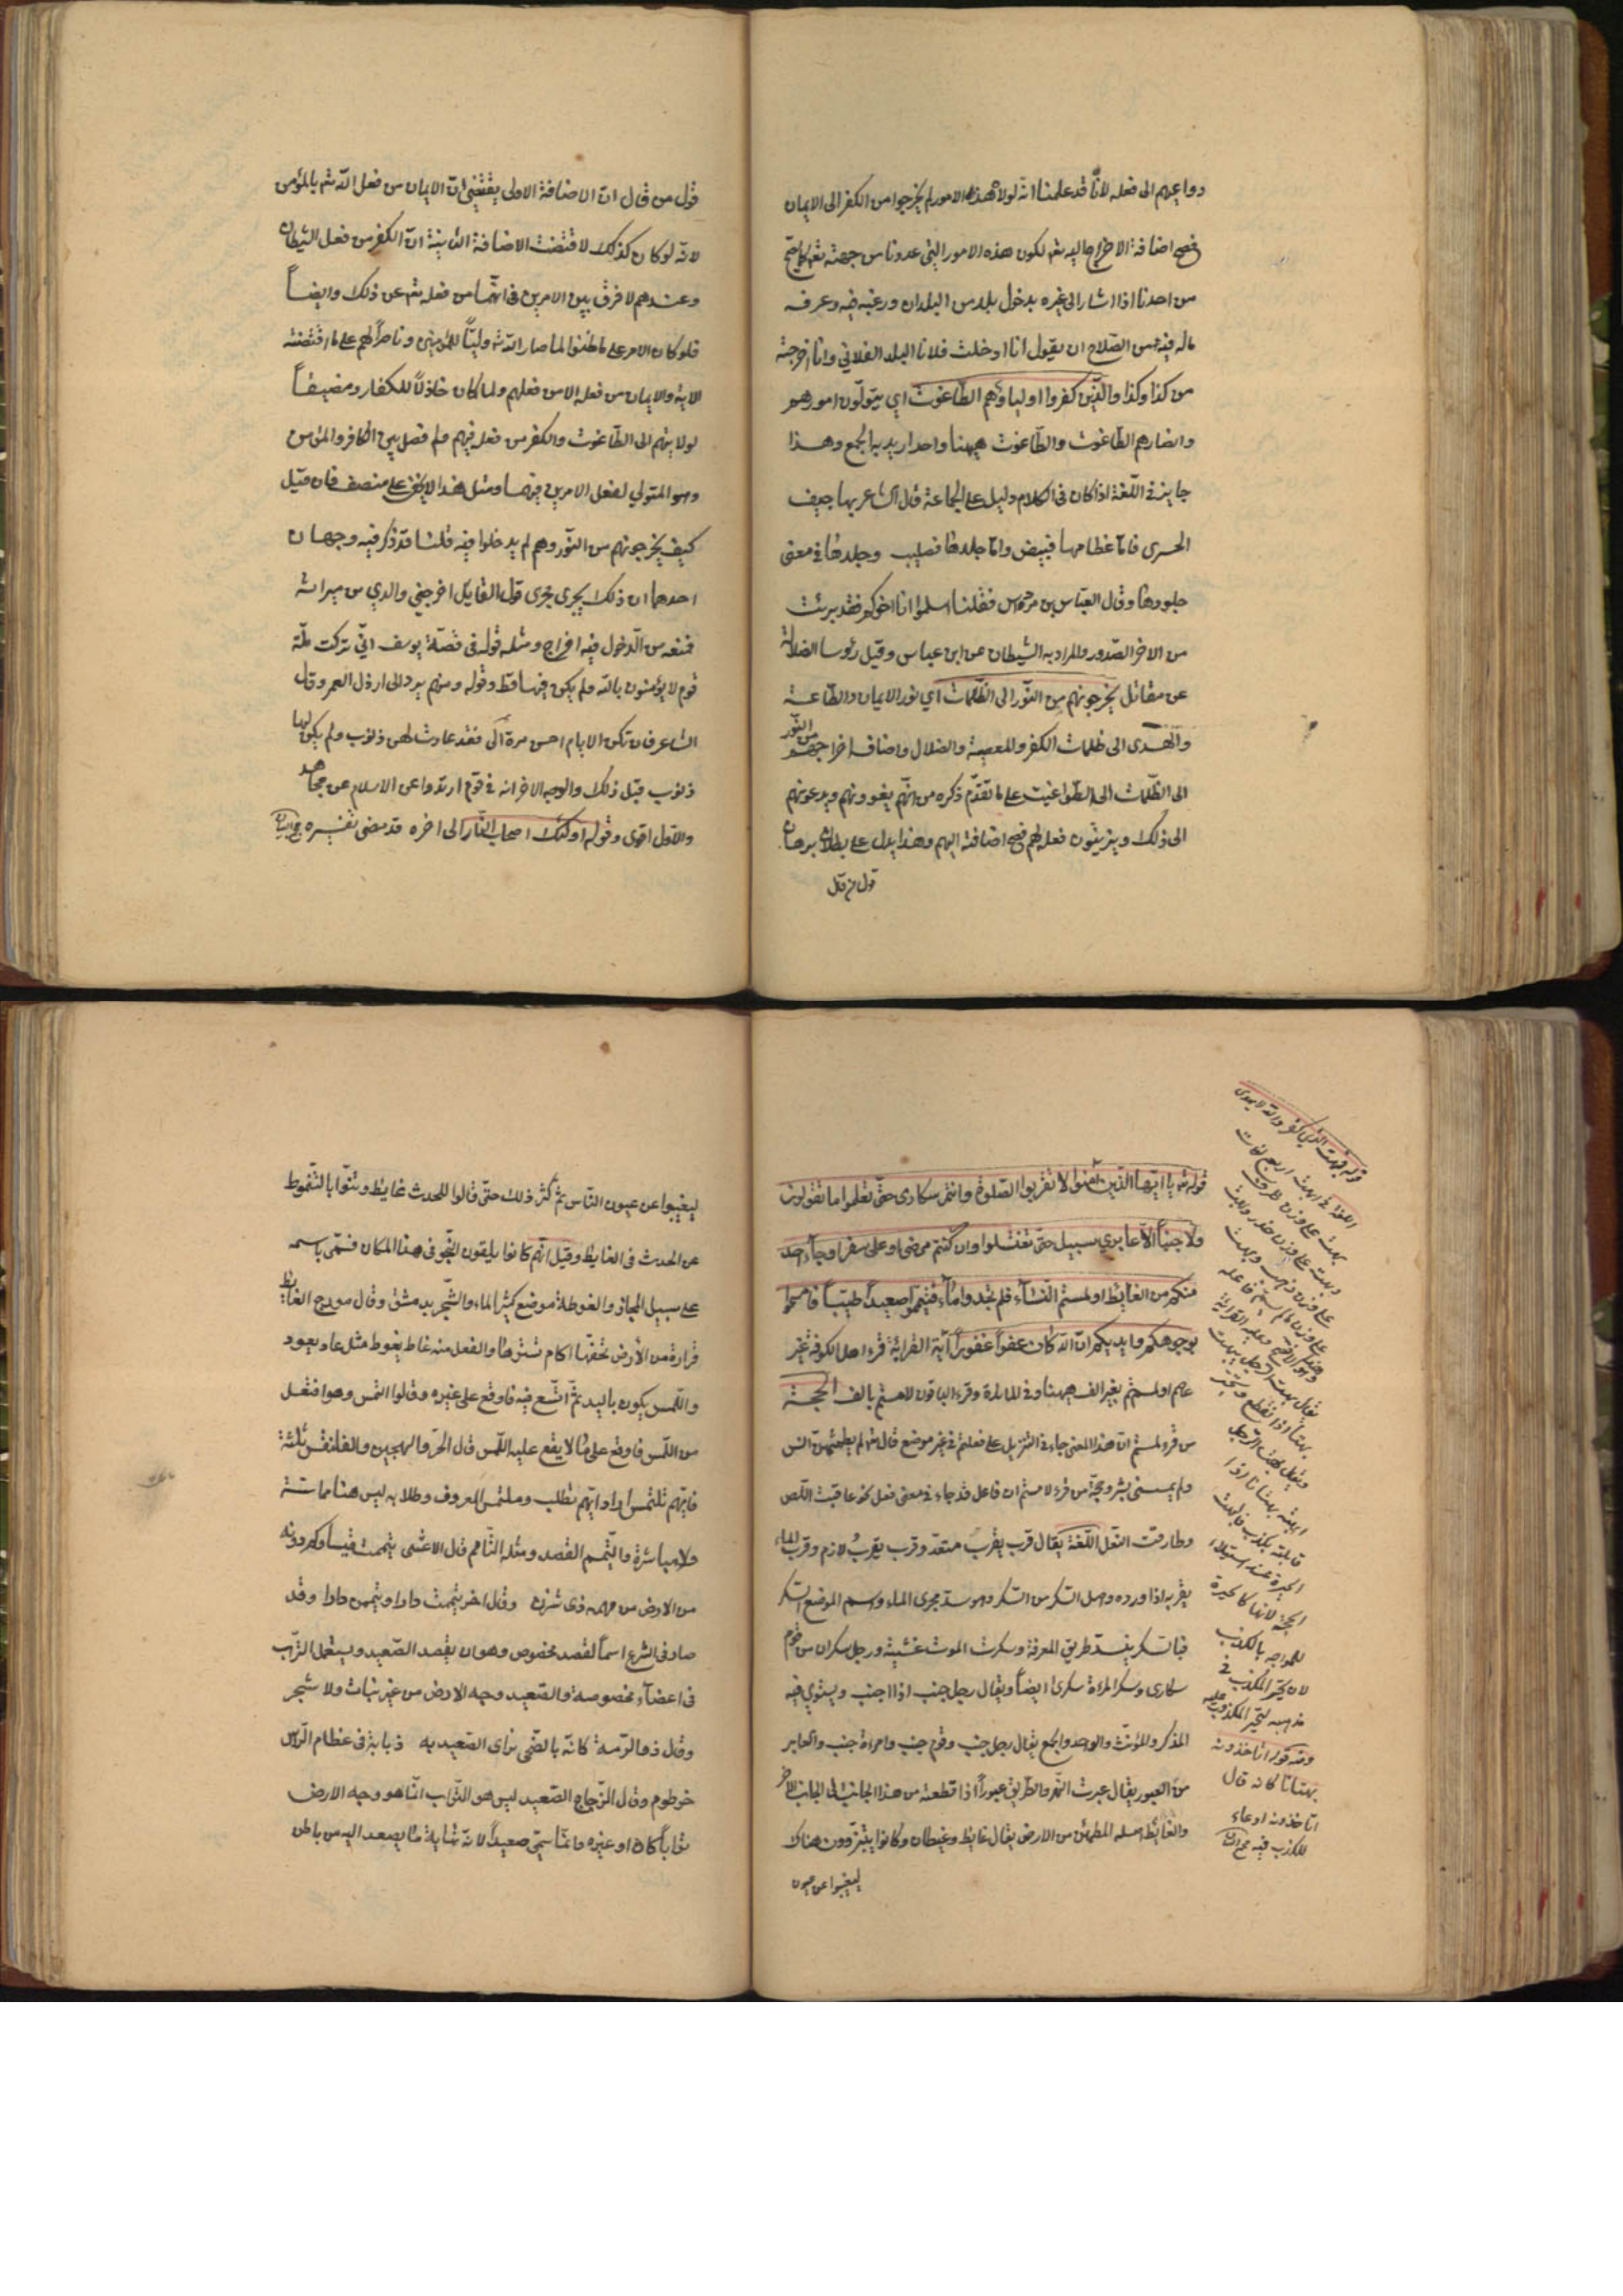 دواعيهم الى فعله لانّا قد علمنا انّه لولا هذه الامور لم يخرجوا من الكفر الى الايمان
فصح اضافة الاخراج اليه تع لكون هذه الامور التي عدوناس من جهته تع كما يصح
من احدنا اذا اشار الى غيره بدخول بلد من البلدان ورغبه فيه وعرفه
ماله فيه من الصّلاح ان يقول انا ادخلت فلانا البلد الفلاني وانا اخرجته
من كذا وكذا والّذين كفروا اولياؤهم الطّاغوت اي يتولّون امورهم
وانصارهم الطّاغوت والطّاغوت ههنا واحد اريد به الجمع وهذا
جايز في اللّغة اذا كان في الكلام دليل على الجماعة قال الشاعر بها جيف
الحسرى فامّا عظامها فبيض وامّا جلدها فصليب وجلدها في معنى
جلودها وقال العبّاس بن مرداس فقلنا اسلموا انا اخوكم فقد برئت
من الاخر الصّدور والمراد به الشيطان عن ابن عباس وقيل رئوسا الضلالة
عن مقاتل يخرجونهم من النّور الى الظّلمات اي نور الايمان والطّاعة
والهدى الى ظلمات الكفر والمعصية والضلال واضاف اخراجهم من النّور
الى الظّلمات الى الطّواغيت على ما تقدّم ذكره من انّهم يغوونهم ويدعونهم
الى ذلك ويزيّنون فعله لهم فصح اضافته اليهم وهذا يدل على بطلان برهان
قول من قال
قول من قال انّ الاضافة الاولى يقتضي انّ الايمان من فعل اللّه تع بالمؤمن
لانّه لو كان كذلك لاقتضت الاضافة الثانية انّ الكفر من فعل الشيطان
وعندهم لا فرق بين الامرين في انّهما من فعله تع عن ذلك وايضاً
فلو كان الامر على ما ظنوا لما صار اللّه تع وليّاً للمؤمنين وناصراً لهم على ما اقتضته
الاية والايمان من فعله لا من فعلهم ولما كان خاذلاً للكفار ومضيفاً
لولايتهم الى الطّاغوت والكفر من فعله فيهم ولم فصل بين الكافر والمؤمن
وهو المتولي لفعل الامرين فيهما ومثل هذا لا يخفى على منصف فان قيل
كيف يخرجونهم من النّور وهم لم يدخلوا فيه قلنا قد ذكر فيه وجهان
احدهما ان ذلك يجرى مجرى قول القايل اخرجني والدي من ميراثه
فمنعه من الّدخول فيه اخراج ومثله قوله في قصّة يوسف انّي تركت ملّة
قوم لا يؤمنون باللّه ولم يكن فيها قط وقوله ومنهم يرد الى ارذل العمر وقال
الشاعر فان تكن الايام احسن مرة الّى فقد عادت لهن ذنوب ولم يكن لها
ذنوب قبل ذلك والوجه الاخر انه في قوم ارتدوا عن الاسلام عن مجاهد
والاول اقوى وقوله اولئك اصحاب النّار الى اخره قد مضى تفسيره
قوله تع يا ايّها الّذين آمنوا لا تقربوا الصّلوة وانتم سكارى حتّى تعلموا ما تقولون
ولا جنباً الاّ عابري سبيل حتّى تغتسلوا وان كنتم مرضى او على سفر او جاء احد
منكم من الغائط او لمستم النّساء فلم تجدوا ماء فتيمّموا صعيداً طيّباً فامسحوا
بوجوهكم وايديكم انّ اللّه كان عفواً غفوراً آية القرائة قرء اهل الكوفة غير
عاصم او لمستم بغير الف ههنا وفي المائدة وقرء الباقون لامستم بالف الحجة
من قرء لمستم انّ هذا المعنى جاء في التنزيل على فعلتم في غير موضع قال تع لم يطمثهنّ انس
ولم يمسسني بشر وحجّة من قرء لامستم ان فاعل قد جاء في معنى فعل نحو عاقبت اللّص
وطارقت النّعل اللّغة يقال قرب يقرب متعدّ وقرب يقرب لازم وقرب الماء
يقربه اذا ورده واصل السّكر من السّكر وهو سدّ مجرى الماء واسم الموضع السّكر
فبالسّكر ينسدّ طريق المعرفة وسكرت الموت غشيته ورجل سكران من قوم
سكارى وسكر المراة سكرى ايضاً ويقال رجل جنب اذا اجنب ويستوي فيه
المذكر والمؤنّث والواحد والجمع يقال رجل جنب وقوم جنب وامراة جنب والعابر
من العبور يقال عبرت النّهر والطّريق عبوراً اذا قطعته من هذا الجانب الى الجانب الاخر
والغائط اصله المطمئن من الارض يقال غايط وغيطان وكانوا يتبرّزون هناك
ليغيبوا عن عيون
قوله فبهت الذي كفر والله لا يهدى
اللغة في البهت اربع لغات
بهت على وزن ظرف
وبهت على وزن حذر وبهت
على وزن ذهب وبهت
على وزن ما لم يسم فاعله
وهو الافصح وعليه القرائة
يقال بهت الرجل يبهت
بهتاً اذا انقطع وتحيّر
ويقال بهت الرجل
ابهته بهتانا اذا
قابلته بكذب فالبهت
الحيرة عند استيلاء
الحجة لانها كالحيرة
للمواجه بالكذب
لان تحيّر المكذب في
مذهبه كتحيّر المكذوب عليه
ومنه قوله اتاخذونه
بهتانا كانه قال
اتاخذونه ادعاء
للكذب فيه
ليغيبوا عن عيون النّاس ثمّ كثر ذلك حتّى قالوا للحدث غايط وكنّوا بالتّغوّط
عن الحدث في الغايط وقيل انّهم كانوا يلقون النّجو في هذا المكان فسمّى باسمه
على سبيل المجاز والغوطة موضع كثير الماء والشّجر بدمشق وقال مورج الغايط
قرارة من الأرض تحفّها اكام تسترها والفعل منه غاط يغوط مثل عاد يعود
واللّمس يكون باليد ثمّ اتّسع فيه فاوقع على غيره وقالوا التمس وهو افتعل
من اللّمس فاوقع على ما لا يقع عليه اللّمس قال الحرّ والهجين والفلنقس ثلثة
فايّهم تلتمس اراد ايّهم تطلب وملتمس المعروف وطلابه ليس هنا مماسّة
ولا مباشرة والتّيمم القصد ومثله التّامّم قال الاعشى تيممت قيسا وكم دونه
من الارض من مهمه ذى شزن وقال اخر تيممت دارا ويممن دارا وقد
صار في الشرع اسماً لقصد مخصوص وهو ان يقصد الصّعيد ويستعمل التّراب
في اعضاء مخصوصة والصّعيد وجه الارض من غير نبات ولا شجر
وقال ذو الرّمة كانّه بالضّحى ترمى الصّعيد به دبابة في عظام الرّاس
خرطوم وقال الزّجاج الصّعيد ليس هو التّراب انّما هو وجه الارض
تراباً كان او غيره وانّما سمّى صعيداً لانّه نهاية ما يصعد اليه من باطن